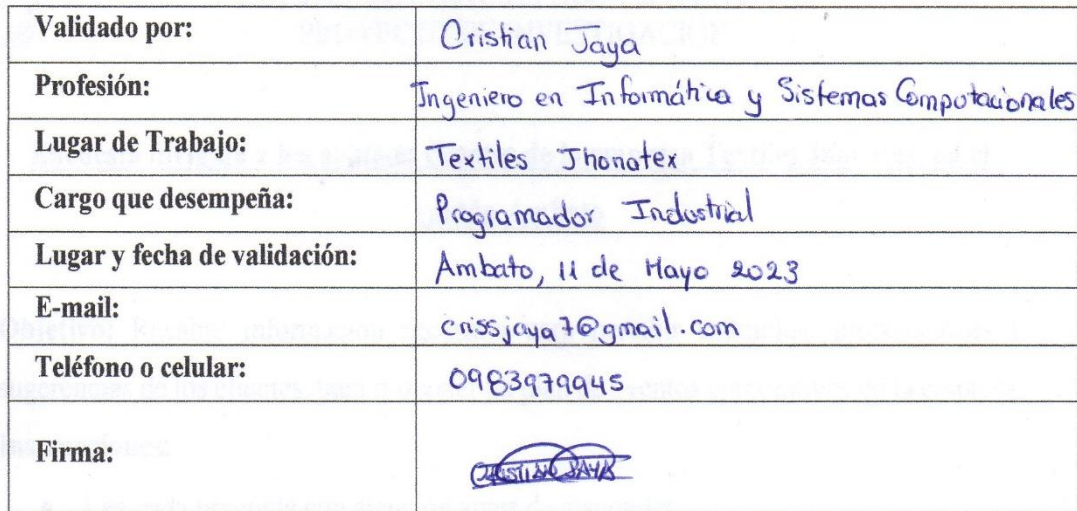 Validado por: Cristian Jaya
Profesión: Ingeniero en Informática y Sistemas Computacionales
Lugar de Trabajo: Textiles Jhonatex
Cargo que desempeña: Programador Industrial
Lugar y fecha de validación: Ambato, 11 de Mayo 2023
E-mail: crissjaya7@gmail.com
Teléfono o celular: 0983979945
Firma: CRISTIAN JAYA